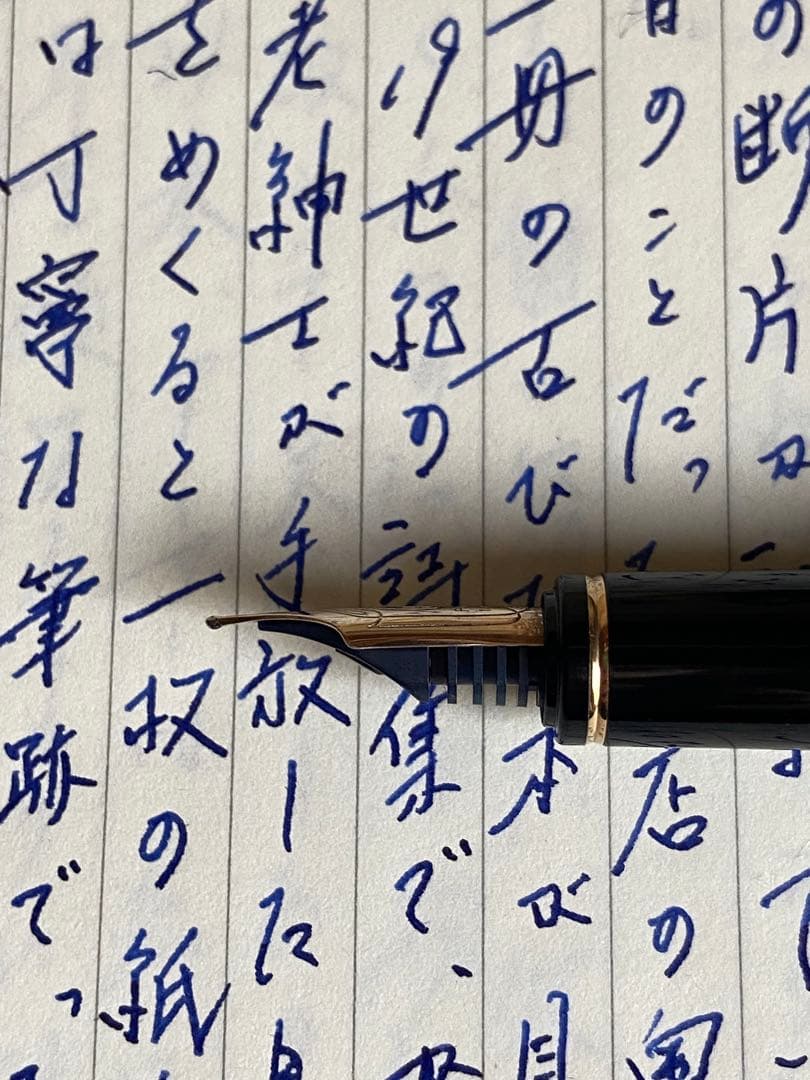 の断片
のことだっ店の奥
一冊の古び本が見
19世紀の詩集で、
老紳士が手放した
をめくると一枚の紙
は丁寧な筆跡で